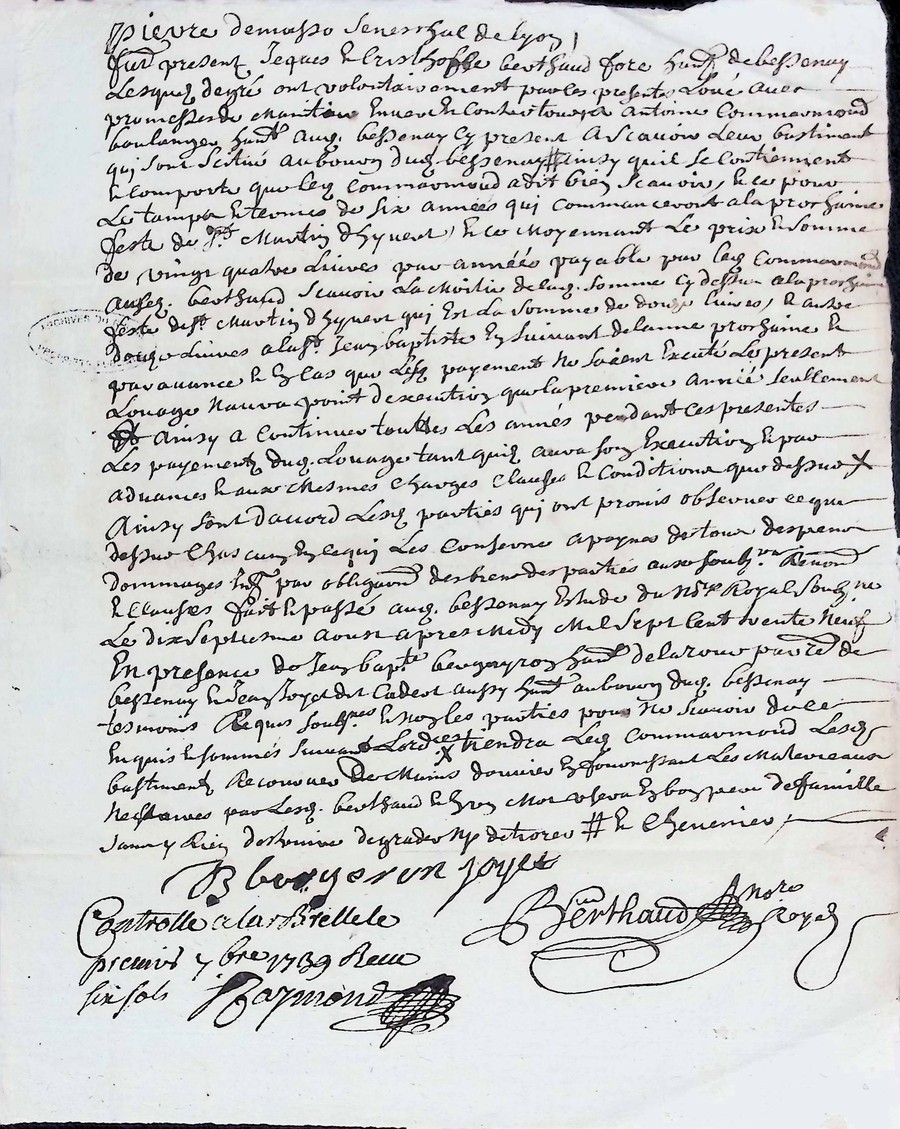 pierre demasso seneschal de lyon
furt present Jeques et Cristhoffle berthaud fore hant de bessenay
Lesquelz degré ont volontairement par les presente Loué avec
promesse de Maintien Envers et Contre tous a Antoine Commarmond
boulanger hant aud. bessenay Cy present Ascavoir Leur bastiment
qui sont Scitué au bourg dud. bessenay # ainsy quil se Contiennent
et Comporte que led Commarmond a dit bien scavoir, et ce pour
Le tamps et termes de six années qui Commanceront a la prochaine
feste de st Martin dhyvert, et ce Moyennant Le prix et somme
de vingt quatre Livres par années payable par led Commarmond
ausd. berthaud Scavoir La Moitié de lad. somme Cy dessus a la prochaine
feste de st Martin dhyvert qui Est La somme de douze livres, et autre
douze Livres a la st Jean baptiste En suivant de lanne prochaine et
par avance et En Cas que Lesd payement Ne soient Executé Le present
Louage Naura point dexecution que la premiere année seullement
Ainsy a Continuer touttes Les années pendant Ces presentes
Les payement dud. Louage tant quil aura son Execution et par
advances et aux Mesmes Charges Clauses et Conditions que dessus X
Ainsy sont daccord Lesd parties qui ont promis observer ce que
dessus Chascun En ce qui Les Conserne a payne de tous despens
dommages Int par obligaon des biens des parties aux Renon
et Clauses fait et passé aud. bessenay Estude du Nore Royal Soubz ne
Le dix Septiesme aoust apres Midy Mil Sept Cent trente Neuf
En presence de Jean bapte bergeyron hant de la roue par re de
bessenay et Jean Joyet dit Cadeot aussy hant au bourg dud. bessenay
tesmoins Requis soubnes et Non les parties pour Ne scavoir de ce
Enquis et sommés suivant Lord ce X tiendra Led Commarmond Lesd
bastiment Recouvert De Mains douvrier En fournissant Les Matereaux
Nessaires par Lesd. berthaud et En Mot usera En bon pere de famille
sans y Rien desTruire degrader Ny detriorer # et Chenevier
B bergeron Joyet
Berthaud Nore Royal
Controlle a la rBrelle le
premier 7bre 1739 Receu
six sols Raymond